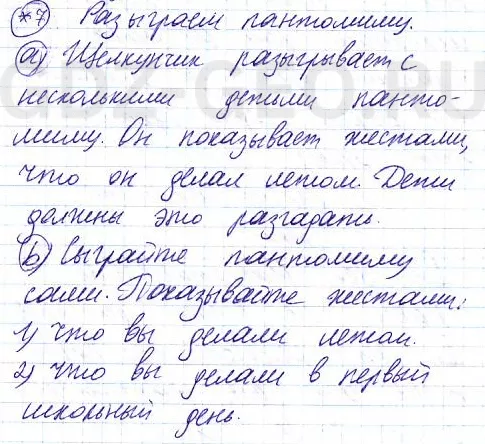 *7 Разыграем пантомиму.
a) Щелкунчик разыгрывает с
несколькими детьми панто-
миму. Он показывает жестами,
что он делал летом. Дети
должны это разгадать.
b) Сыграйте пантомиму
сами. Показывайте жестами:
1) что вы делали летом.
2) что вы делали в первый
школьный день.